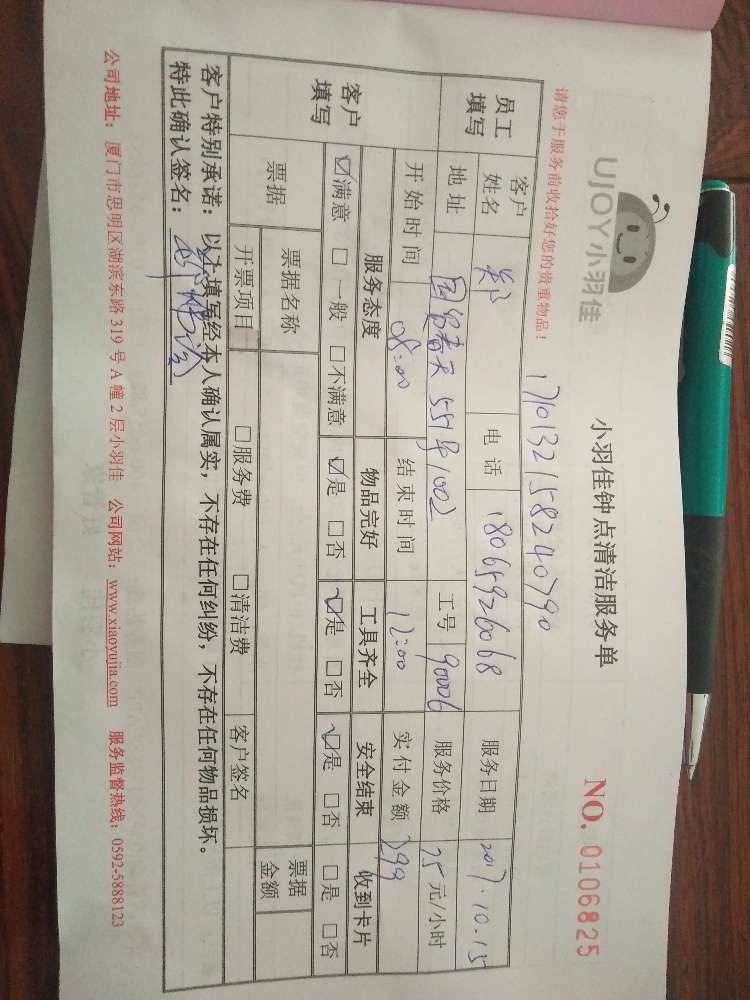 UJOY小羽佳
小羽佳钟点清洁服务单
NO. 0106825
请您于服务前收拾好您的贵重物品！
1710132158240790
员工填写
客户姓名 郑 电话 18065926068 服务日期 2017.10.15
地址 国贸春天 551号1002 工号 90006 服务价格 75元/小时
开始时间 08:00 结束时间 12:00 实付金额 299
客户填写
服务态度 物品完好 工具齐全 安全结束 收到卡片
☑满意 □一般 □不满意 ☑是 □否 ☑是 □否 ☑是 □否 □是 □否
票据
票据名称 票据金额
开票项目 □服务费 □清洁费 客户签名
客户特别承诺：以上填写经本人确认属实，不存在任何纠纷，不存在任何物品损坏。
特此确认签名：
公司地址：厦门市思明区湖滨东路319号A幢2层小羽佳 公司网站：www.xiaoyujia.com 服务监督热线：0592-5888123